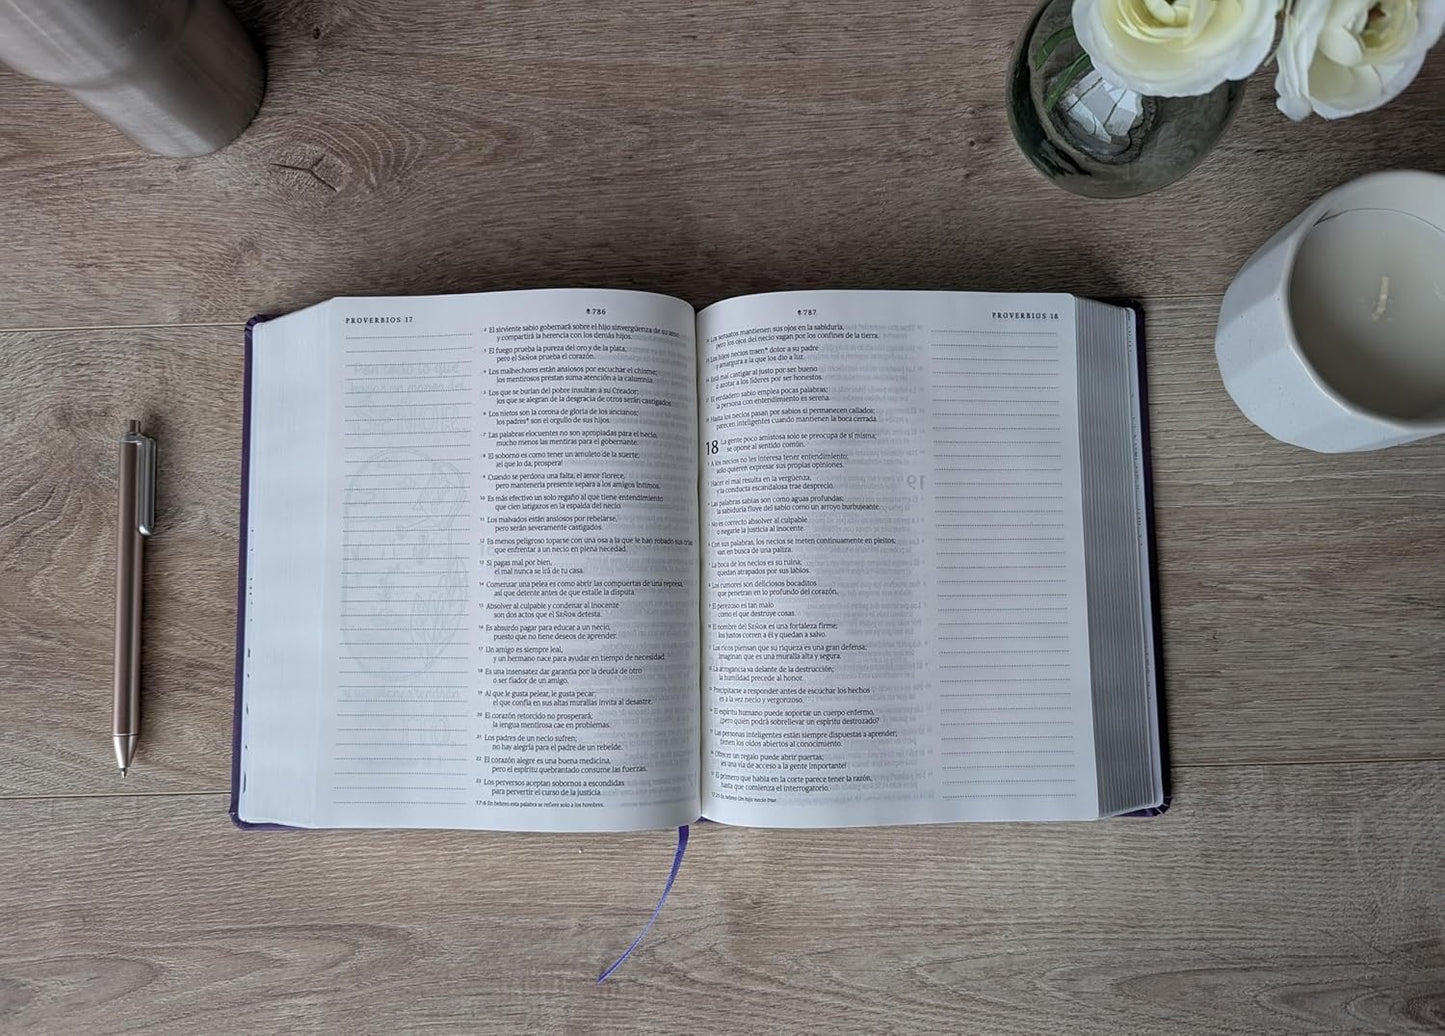 PROVERBIOS 17
786
2 El sirviente sabio gobernará sobre el hijo sinvergüenza de su amo
y compartirá la herencia con los demás hijos.
3 El fuego prueba la pureza del oro y de la plata,
pero el SEÑOR prueba el corazón.
4 Los malhechores están ansiosos por escuchar el chisme;
los mentirosos prestan suma atención a la calumnia.
5 Los que se burlan del pobre insultan a su Creador;
los que se alegran de la desgracia de otros serán castigados.
6 Los nietos son la corona de gloria de los ancianos;
los padres* son el orgullo de sus hijos.
7 Las palabras elocuentes no son apropiadas para el necio,
mucho menos las mentiras para el gobernante.
8 El soborno es como tener un amuleto de la suerte;
¡el que lo da, prospera!
9 Cuando se perdona una falta, el amor florece,
pero mantenerla presente separa a los amigos íntimos.
10 Es más efectivo un solo regaño al que tiene entendimiento
que cien latigazos en la espalda del necio.
11 Los malvados están ansiosos por rebelarse,
pero serán severamente castigados.
12 Es menos peligroso toparse con una osa a la que le han robado sus crías
que enfrentar a un necio en plena necedad.
13 Si pagas mal por bien,
el mal nunca se irá de tu casa.
14 Comenzar una pelea es como abrir las compuertas de una represa,
así que detente antes de que estalle la disputa.
15 Absolver al culpable y condenar al inocente
son dos actos que el SEÑOR detesta.
16 Es absurdo pagar para educar a un necio,
puesto que no tiene deseos de aprender.
17 Un amigo es siempre leal,
y un hermano nace para ayudar en tiempo de necesidad.
18 Es una insensatez dar garantía por la deuda de otro
o ser fiador de un amigo.
19 Al que le gusta pelear, le gusta pecar;
el que confía en sus altas murallas invita al desastre.
20 El corazón retorcido no prosperará;
la lengua mentirosa cae en problemas.
21 Los padres de un necio sufren;
no hay alegría para el padre de un rebelde.
22 El corazón alegre es una buena medicina,
pero el espíritu quebrantado consume las fuerzas.
23 Los perversos aceptan sobornos a escondidas
para pervertir el curso de la justicia.
17:6 En hebreo esta palabra se refiere solo a los hombres.
787
PROVERBIOS 18
Los sensatos mantienen sus ojos en la sabiduría,
pero los ojos del necio vagan por los confines de la tierra.
Los hijos necios traen* dolor a su padre
y amargura a la que los dio a luz.
Está mal castigar al justo por ser bueno
o azotar a los líderes por ser honestos.
El verdadero sabio emplea pocas palabras;
la persona con entendimiento es serena.
Hasta los necios pasan por sabios si permanecen callados;
parecen inteligentes cuando mantienen la boca cerrada.
18 La gente poco amistosa solo se preocupa de sí misma;
se opone al sentido común.
A los necios no les interesa tener entendimiento;
solo quieren expresar sus propias opiniones.
Hacer el mal resulta en la vergüenza,
y la conducta escandalosa trae desprecio.
Las palabras sabias son como aguas profundas;
la sabiduría fluye del sabio como un arroyo burbujeante.
No es correcto absolver al culpable
o negarle la justicia al inocente.
Con sus palabras, los necios se meten continuamente en pleitos;
van en busca de una paliza.
La boca de los necios es su ruina;
quedan atrapados por sus labios.
Los rumores son deliciosos bocaditos
que penetran en lo profundo del corazón.
El perezoso es tan malo
como el que destruye cosas.
El nombre del SEÑOR es una fortaleza firme;
los justos corren a él y quedan a salvo.
Los ricos piensan que su riqueza es una gran defensa;
imaginan que es una muralla alta y segura.
La arrogancia va delante de la destrucción;
la humildad precede al honor.
Precipitarse a responder antes de escuchar los hechos
es a la vez necio y vergonzoso.
El espíritu humano puede soportar un cuerpo enfermo,
¿pero quién podrá sobrellevar un espíritu destrozado?
Las personas inteligentes están siempre dispuestas a aprender;
tienen los oídos abiertos al conocimiento.
Ofrecer un regalo puede abrir puertas;
¡es una vía de acceso a la gente importante!
El primero que habla en la corte parece tener la razón,
hasta que comienza el interrogatorio.
17:25 En hebreo Un hijo necio trae